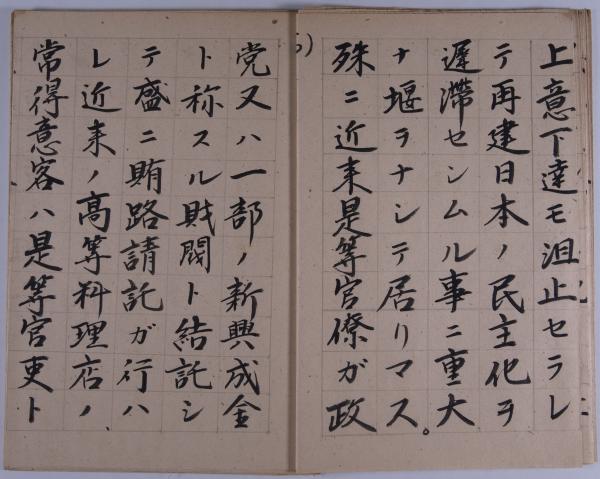 上意下達モ沮止セラレ
テ再建日本ノ民主化ヲ
遅滞セシムル事ニ重大
ナ堰ヲナシテ居リマス。
殊ニ近来是等官僚ガ政
党又ハ一部ノ新興成金
ト称スル財閥ト結託シ
テ盛ニ賄路請託ガ行ハ
レ近来ノ高等料理店ノ
常得意客ハ是等官吏ト